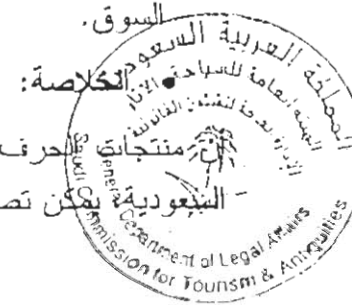 السوق.
• الخلاصة:
أن منتجات الحرف
السعودية يمكن تص
المملكة العربية السعودية
الهيئة العامة للسياحة والآثار
الإدارة العامة للشئون القانونية
General Department of Legal Affairs
Saudi Commission for Tourism & Antiquities